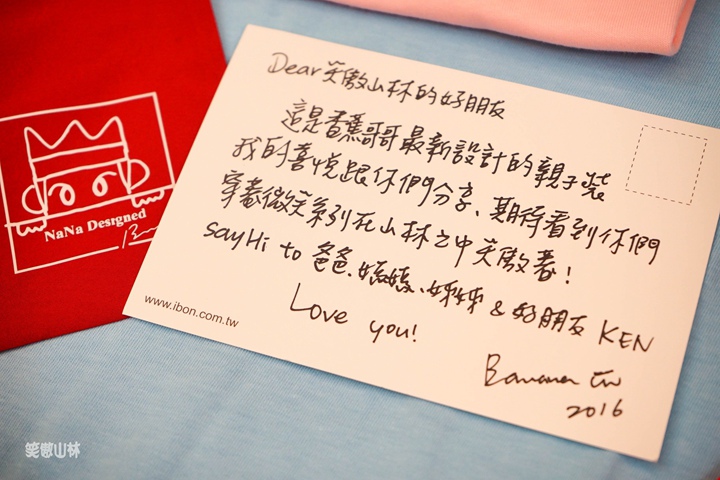 Dear 笑傲山林的好朋友
這是香蕉哥哥最新設計的親子裝
我的喜悅跟你們分享、期待看到你們
穿著微笑系列在山林之中笑傲著!
sayHi to 爸爸、媽媽、姊姊 & 好朋友 KEN
Love you!
2016
www.ibon.com.tw
NaNa Designed
笑傲山林